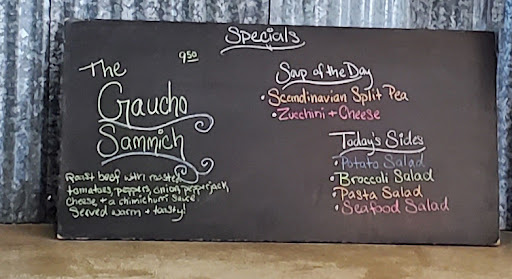 Specials
9.50
The
Gaucho
Sammich
Roast beef with roasted
tomatoes, peppers, onion, pepperjack,
cheese + a chimichurri sauce.
Served warm + toasty!
Soup of the Day
• Scandinavian Split Pea
• Zucchini + Cheese
Today's Sides
• Potato Salad
• Broccoli Salad
• Pasta Salad
• Seafood Salad